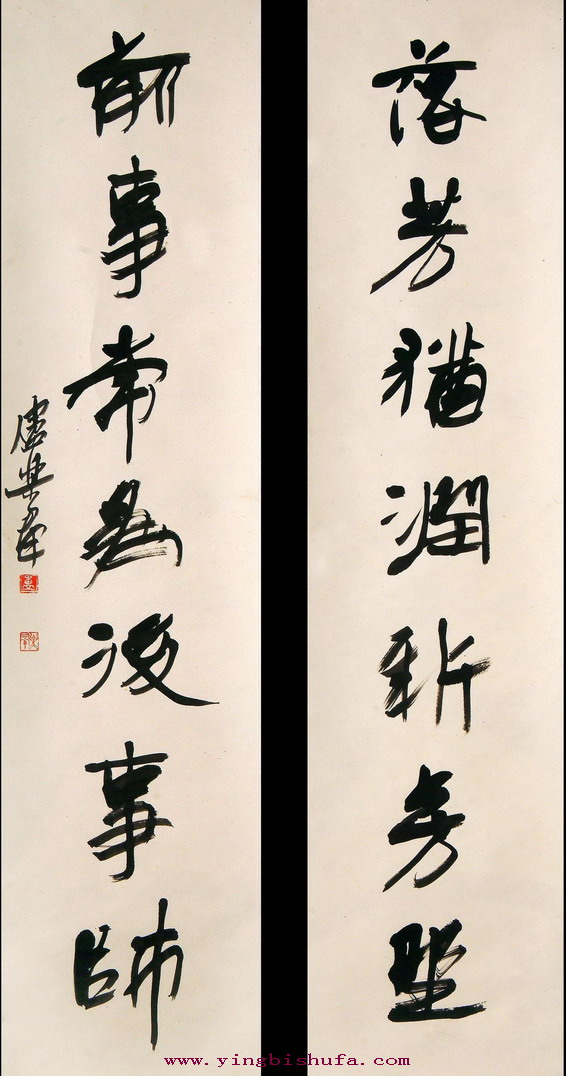 落芳猶潤新芳
前事常為後事師
盧樂群
www.yingbishufa.com